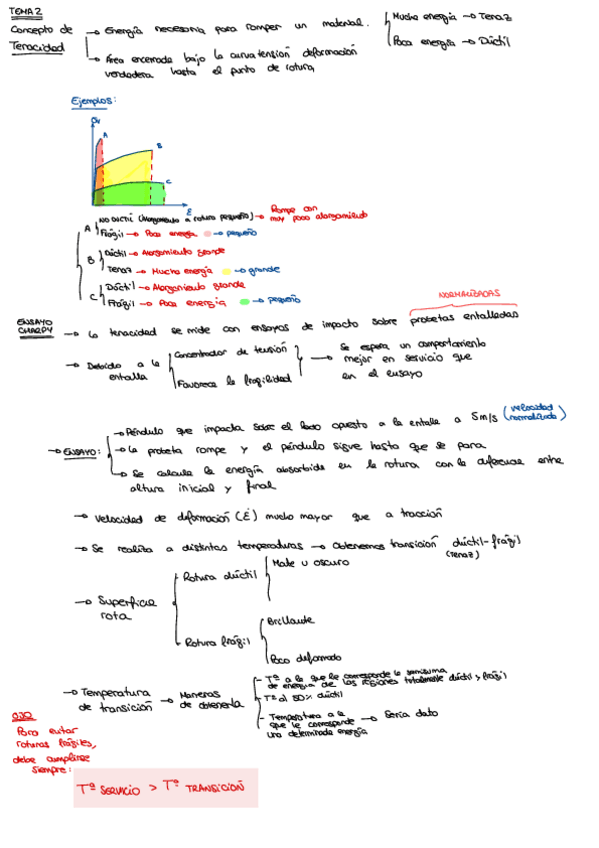 TEMA 2
Concepto de Tenacidad
→ Energía necesaria para romper un material.
Mucha energía → Tenaz
Poca energía → Dúctil
→ Área encerrada bajo la curva tensión deformación
verdadera hasta el punto de rotura,
Ejemplos:
A
B
C
ε
A
NO DÚCTIL (Alargamiento a rotura pequeño) → Rompe con
muy poco alargamiento
Frágil → Poca energía → pequeño
B
Dúctil → Alargamiento grande
Tenaz → Mucha energía → grande
C
Dúctil → Alargamiento grande
Frágil → Poca energía → pequeño
NORMALIZADAS
ENSAYO
CHARPY
→ La tenacidad se mide con ensayos de impacto sobre probetas entalladas
→ Debido a la
entalla
Concentrador de tensión
Favorece la fragilidad
→ Se espera un comportamiento
mejor en servicio que
en el ensayo
→ ENSAYO:
→ Péndulo que impacta sobre el lado opuesto a la entalla a 5m/s (velocidad
normalizada)
→ La probeta rompe y el péndulo sigue hasta que se para
→ Se calcula la energía absorbida en la rotura con la diferencia entre
altura inicial y final
→ Velocidad de deformación (ε̇) mucho mayor que a tracción
→ Se realiza a distintas temperaturas → Obtenemos transición dúctil-frágil
(tenaz)
→ Superficie
rota
Rotura dúctil
Mate u oscuro
Rotura frágil
Brillante
Poco deformado
→ Temperatura
de transición
→ Maneras
de obtenerla
- Tª a la que le corresponde la semisuma
de energía de las regiones totalmente dúctil y frágil
- Tª al 50% dúctil
- Temperatura a la
que le corresponde
una determinada energía
→ Sería dato
OJO
Para evitar
roturas frágiles,
debe cumplirse
siempre:
Tª SERVICIO > Tª TRANSICIÓN